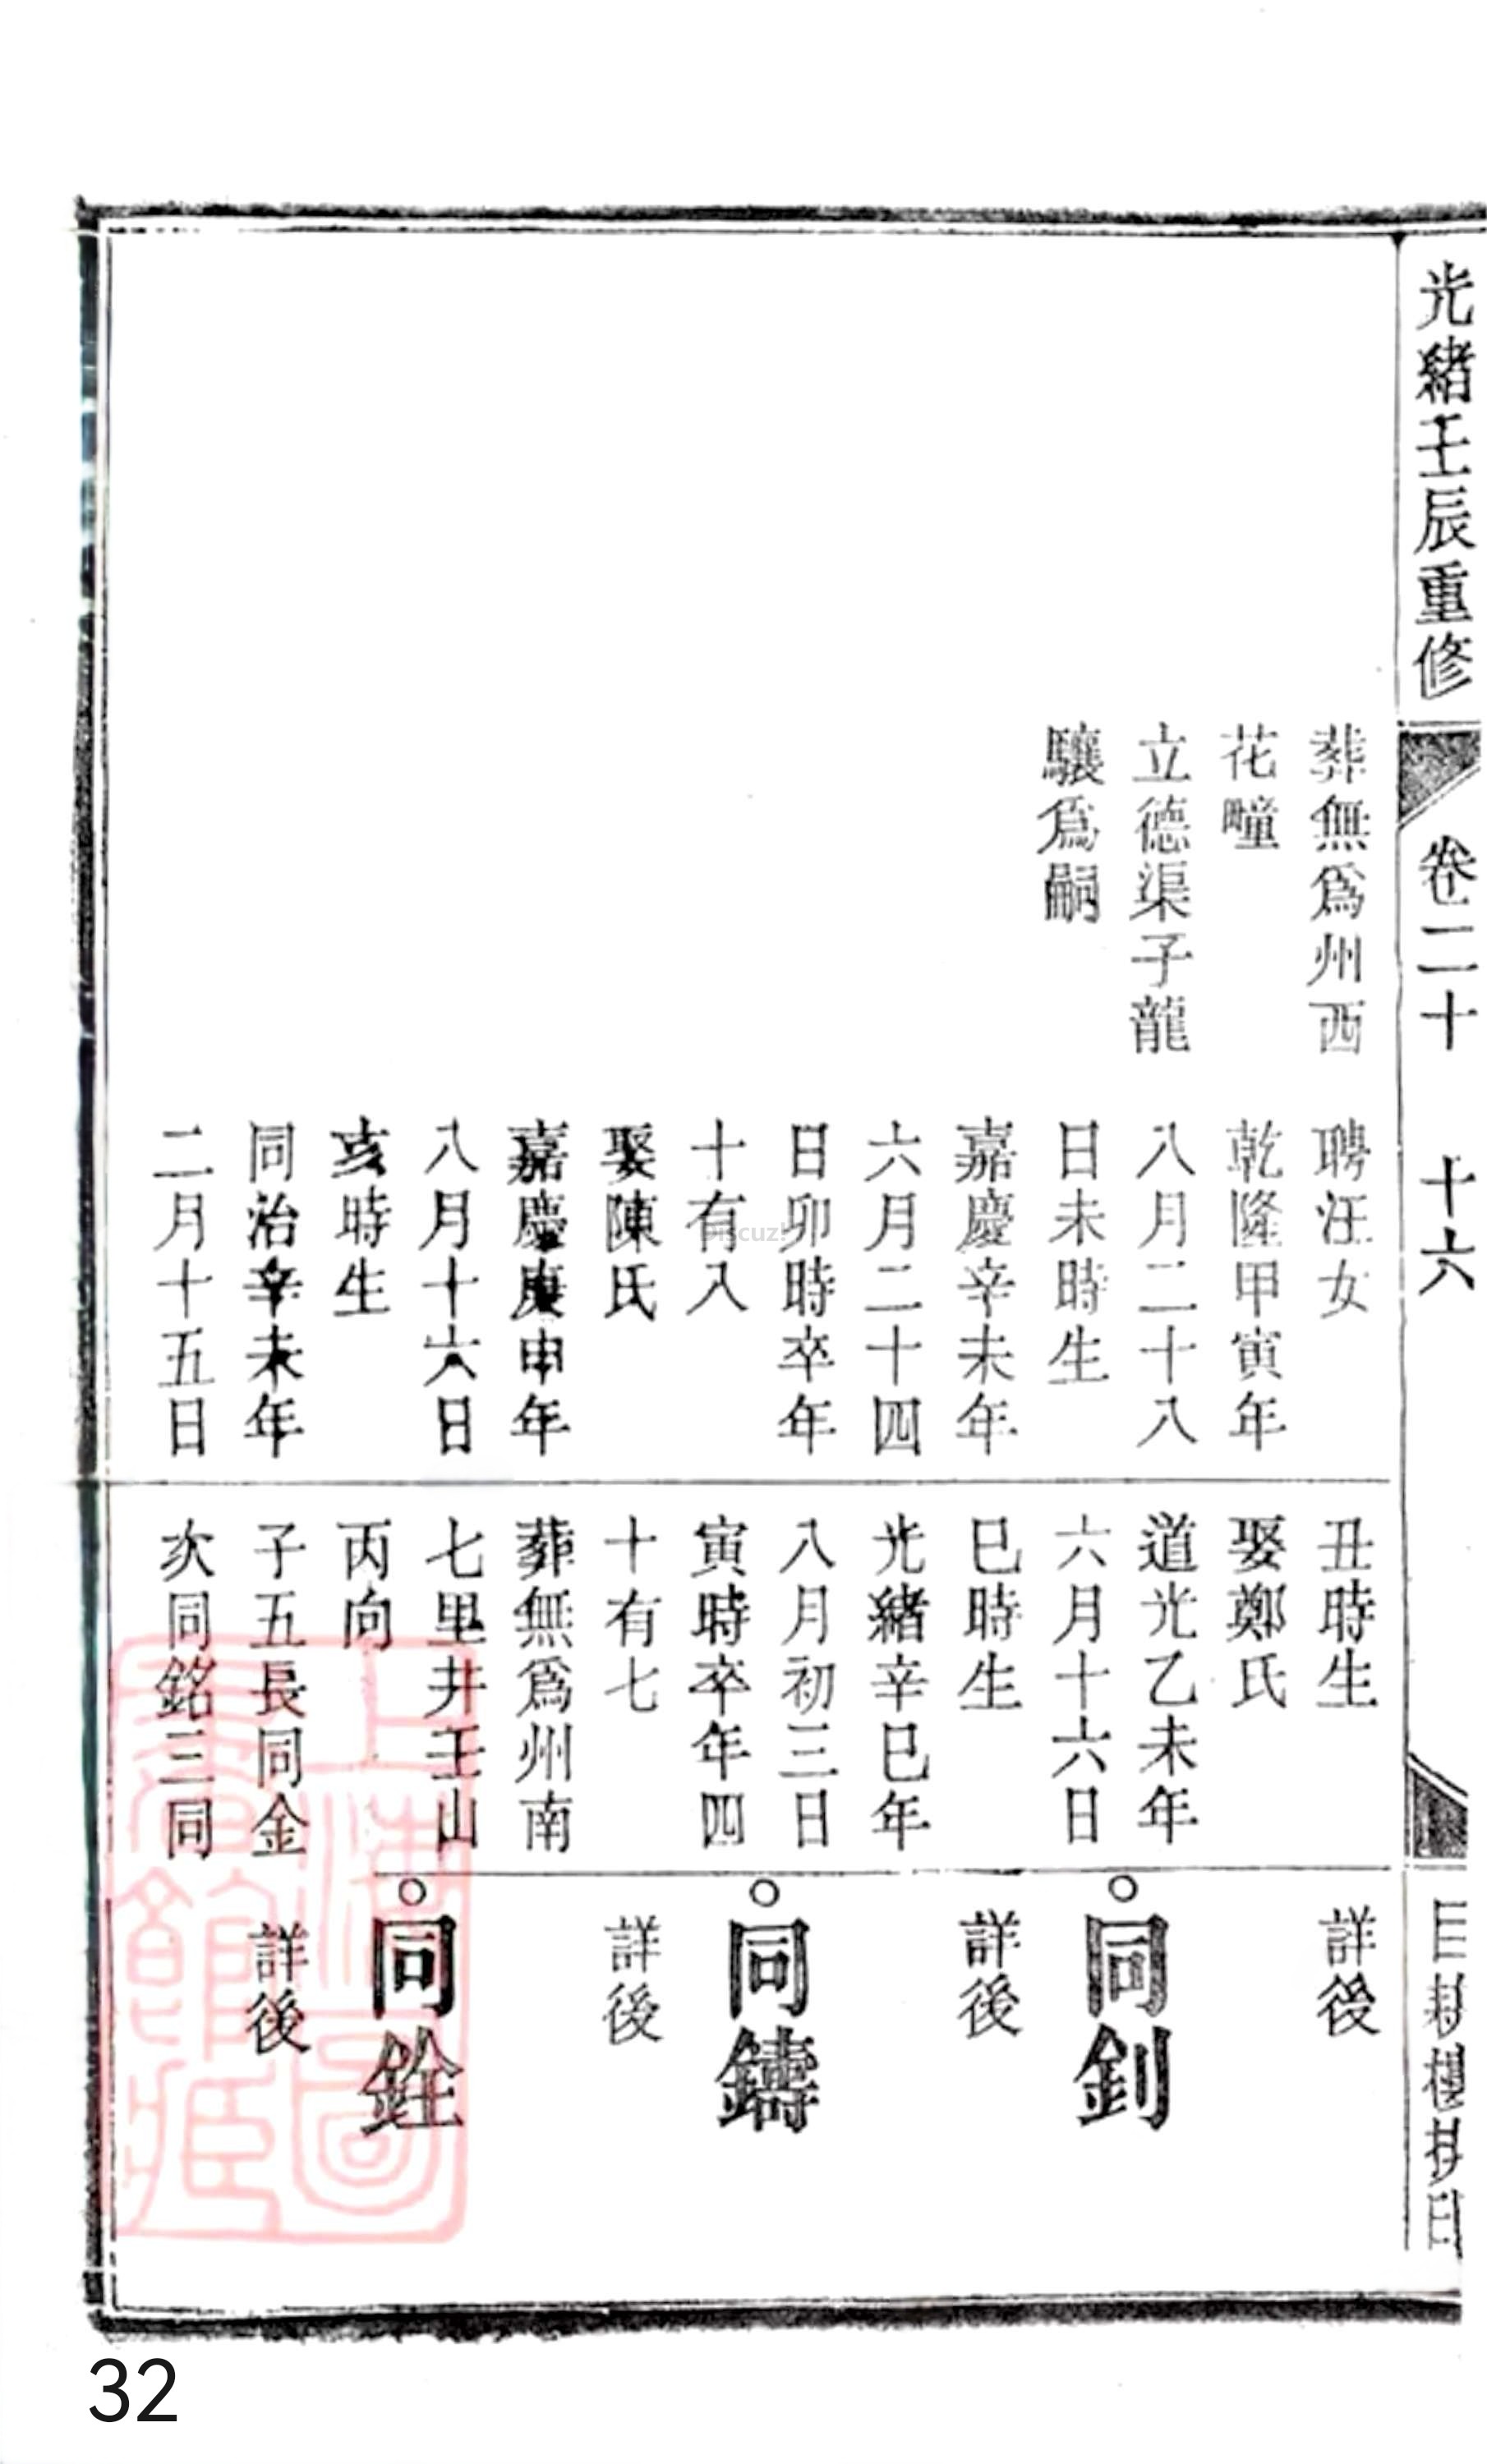 光緒壬辰重修
卷二十
十六
葬無爲州西
花疃
立德渠子龍
驤爲嗣
聘汪女
乾隆甲寅年
八月二十八
日未時生
嘉慶辛未年
六月二十四
日卯時卒年
十有八
娶陳氏
嘉慶庚申年
八月十六日
亥時生
同治辛未年
二月十五日
丑時生
娶鄭氏
道光乙未年
六月十六日
巳時生
光緒辛巳年
八月初三日
寅時卒年四
十有七
葬無爲州南
七里井壬山
丙向
子五長同金
次同銘三同
詳後
同釗
詳後
同鑄
詳後
同銓
詳後
上海圖書館藏
Discuz!
32